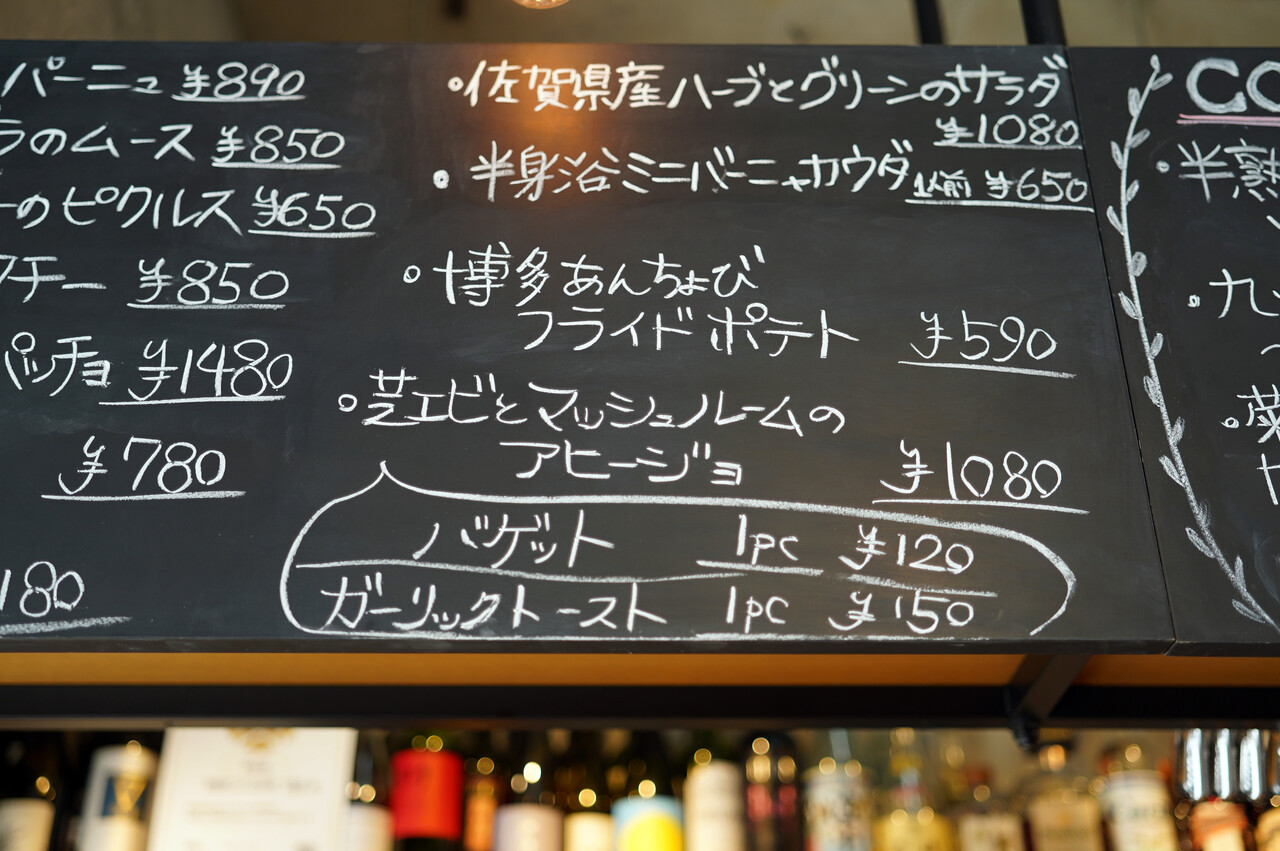 パーニュ ¥890
ラのムース ¥850
ーのピクルス ¥650
チー ¥850
パッチョ ¥1480
¥780
180
○佐賀県産ハーブとグリーンのサラダ
¥1080
○半身浴ミニバーニャカウダ 1人前 ¥650
○博多あんちょび
フライドポテト ¥590
○芝エビとマッシュルームの
アヒージョ ¥1080
バゲット 1pc ¥120
ガーリックトースト 1pc ¥150
CO
○半熟
○九